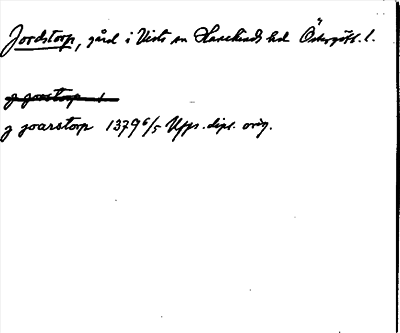 Jordstorp, gård i Vists sn Hanekinds hd Östergötl. l.
j joarstorp 1379 6/5 Upps. dipl. orig.